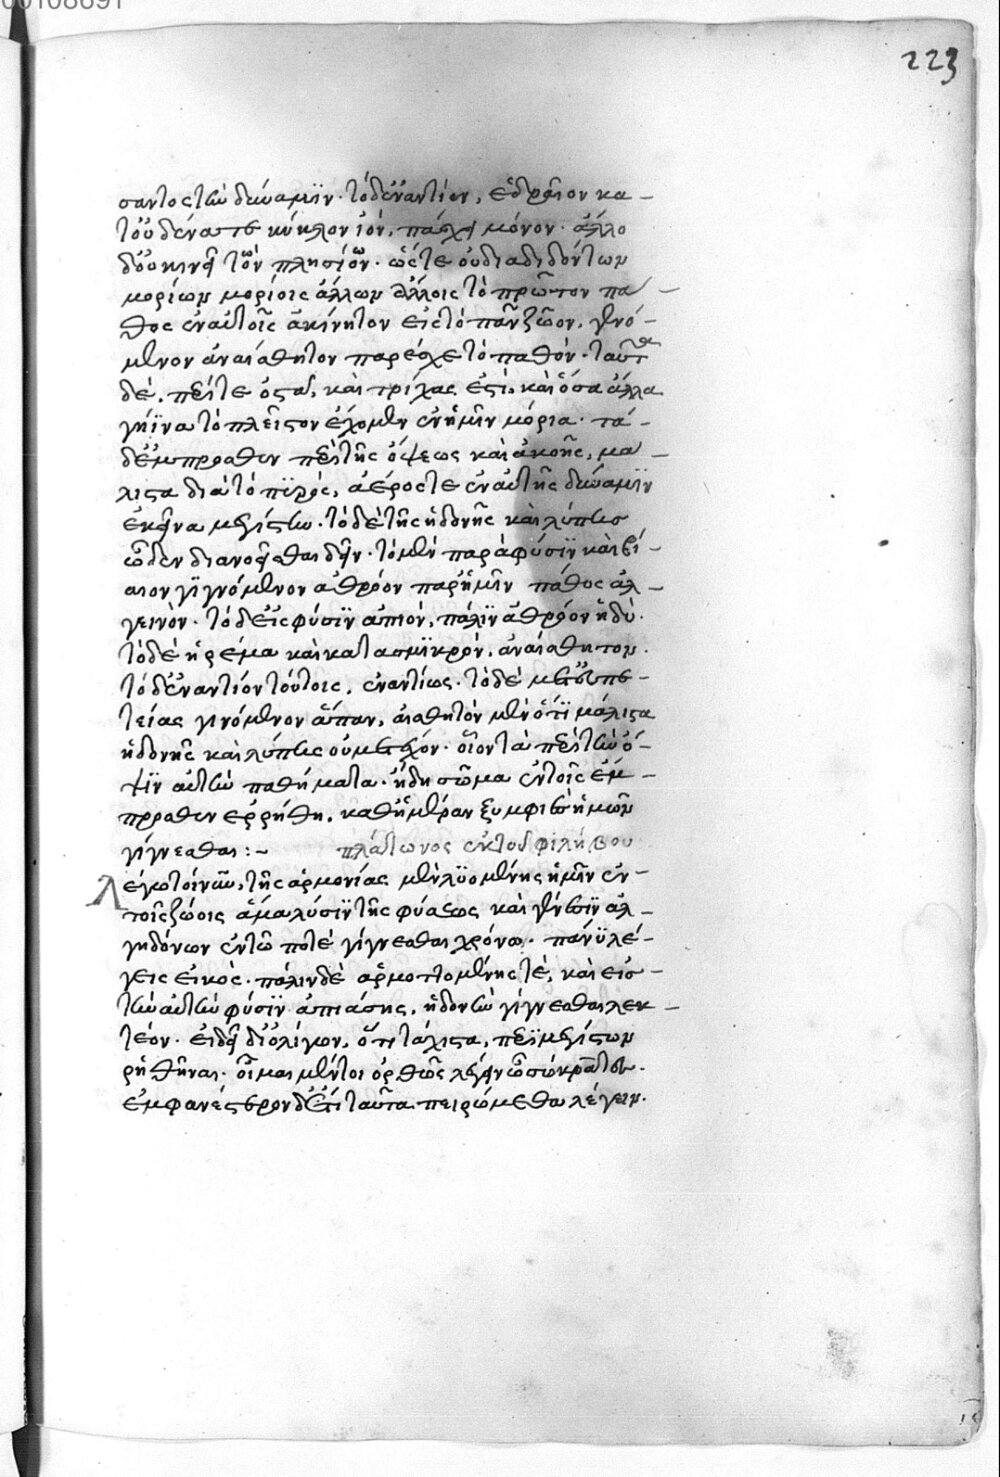 00108691
223
σαντος τὴν δύναμϊν· τὸ δ' ἐναντίον, ἑδραῖον κα-
τ' οὐδένα τε κύκλον ἰὸν, πάσχει μόνον· ἄλλο
δ' οὐ κινεῖ τῶν πλησίον· ὥστε οὐ διαδιδόντων
μορίων μορίοις ἄλλων ἄλλοις τὸ πρῶτον πά-
θος ἐν αὐτοῖς ἀκίνητον εἰς τὸ πᾶν ζῶον, γενό-
μενον ἀναίσθητον παρέσχε τὸ παθόν· ταῦτα
δὲ, περί τε ὀστᾶ, καὶ τρίχας ἐστὶ, καὶ ὅσα ἄλλα
γήϊνα τὸ πλεῖστον ἔχομεν ἐν ἡμῖν μόρια· τὰ
δ' ἔμπροσθεν περὶ τῆς ὄψεως καὶ ἀκοῆς, μά-
λιστα διὰ τὸ πϋρός, ἀέρος τε ἐν αὐτῆς δύναμϊν
ἐκεῖνα μεγίστην· τὸ δὲ τῆς ἡδονῆς καὶ λύπης
ὧδε δεῖ διανοεῖσθαι δεῖν· τὸ μὲν παρὰ φύσϊν καὶ βί-
αιον γϊγνόμενον ἀθρόον παρ' ἡμῖν πάθος ἀλ-
γεινόν· τὸ δ' εἰς φύσϊν ἀπιὸν, πάλϊν ἀθρόον ἡδύ·
τὸ δὲ ἠρέμα καὶ κατὰ σμϊκρὸν, ἀναίσθητον·
τὸ δ' ἐναντίον τούτοις, ἐναντίως· τὸ δὲ μετ' εὐπε-
τείας γινόμενον ἅπαν, αἰσθητὸν μὲν ὅτϊ μάλιστα
ἡδονῆς καὶ λύπης οὐ μετέχον· οἷον τὰ περὶ τὴν ὄ-
ψϊν αὐτὴν παθήματα· ἣ δὴ σῶμα ἐν τοῖς ἔμ-
προσθεν ἐρρήθη, καθ' ἡμέραν ξυμφυὲς ἡμῶν
γίγνεσθαι:~ πλάτωνος ἐκ τοῦ φιλήβου
Λέγω τοίνυν, τῆς ἁρμονίας μὲν λϋομένης ἡμῖν ἐν
τοῖς ζώοις ἅμα λύσϊν τῆς φύσεως καὶ γένεσϊν ἀλ-
γηδόνων ἐν τῶ ποτὲ γίγνεσθαι χρόνω· πάνϋ λέ-
γεις εἰκὸς· πάλιν δὲ ἁρμοττομένης τὲ, καὶ εἰς
τὴν αὐτὴν φύσϊν ἀπιάσης, ἡδονὴν γίγνεσθαι λεκ-
τέον· εἰ δεῖ δι' ὀλίγων, ὅτι τάχιστα, περϊ μεγίστων
ρηθῆναι· οἶμαι μέντοι ὀρθῶς λέγειν ὦ σώκρατες·
ἐμφανέστερον δ' ἔτι ταῦτα πειρώμεθα λέγειν·